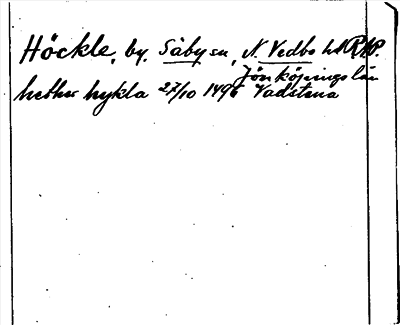 Höckle, by. Säby sn, N. Vedbo hd RAP.
Jönköpings län
hether hykla 27/10 1496 Vadstena